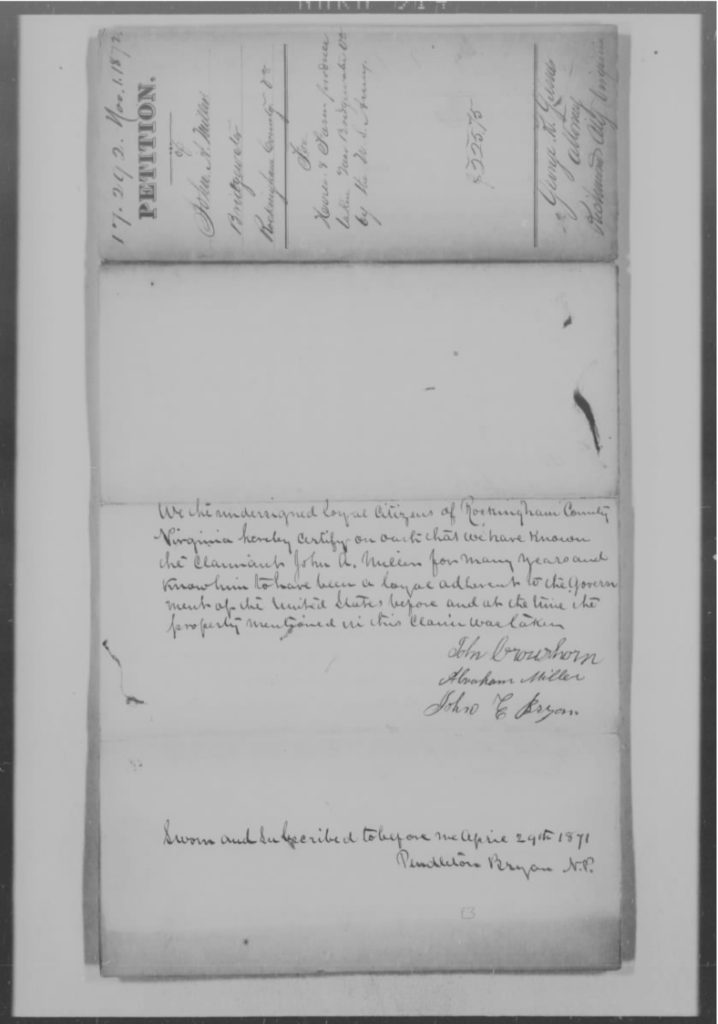 17.292. Nov. 1. 1872.
PETITION.
of
John A. Miller
Bridgewater
Rockingham County Va
For
Horse & Farm produce
taken Near Bridgewater Va
by the U. S. Army.
$225.75
George K.
Attorney
Richmond City Virginia
We the undersigned Loyal Citizens of Rockingham County
Virginia hereby certify on oath that we have known
the Claimant John A. Miller for many years and
know him to have been a loyal adherent to the Govern
ment of the United States before and at the time the
property mentioned in this claim was taken
John Crowshorn
Abraham Miller
John E Bryan
Sworn and Subscribed to before me April 29th 1871
Pendleton Bryan N.P.